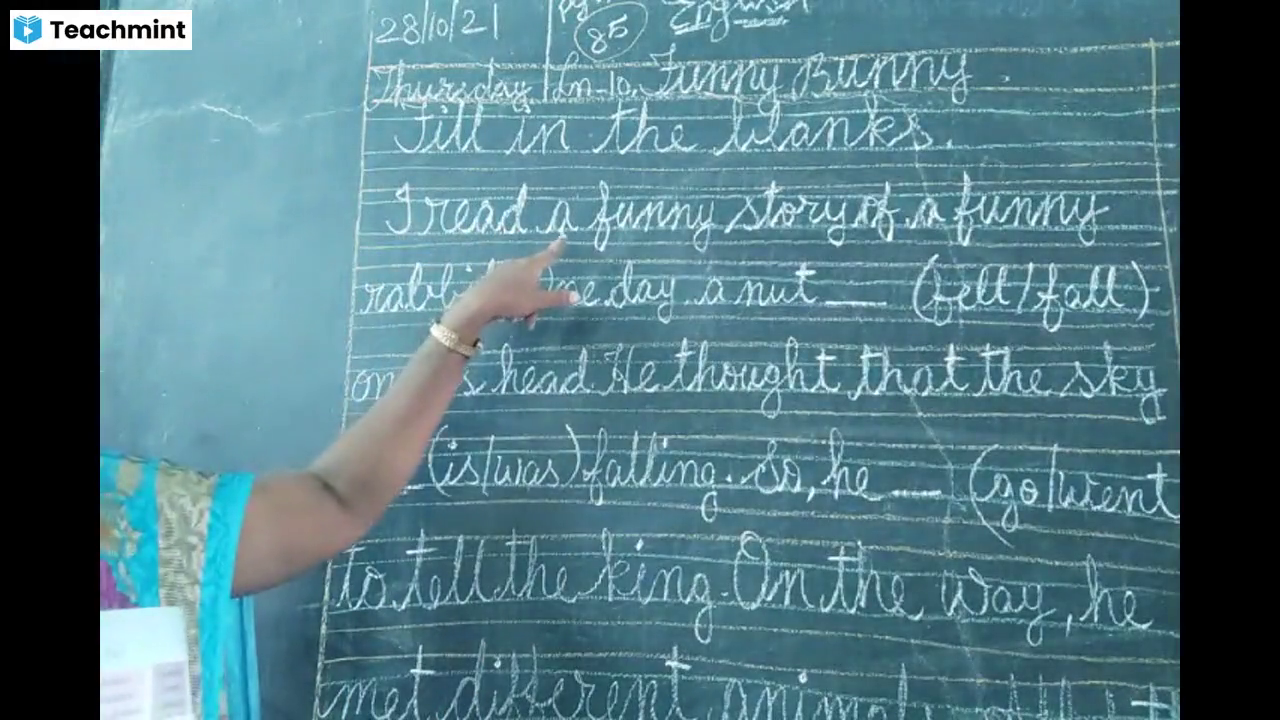 Teachmint
28/10/21 85 English
Thursday Ln-10. Funny Bunny.
Fill in the blanks.
I read a funny story of a funny
day a nut __ (fell/fall)
head. He thought that the sky
(is/was) falling. So, he __ (go/went
to tell the king. On the way, he
met different